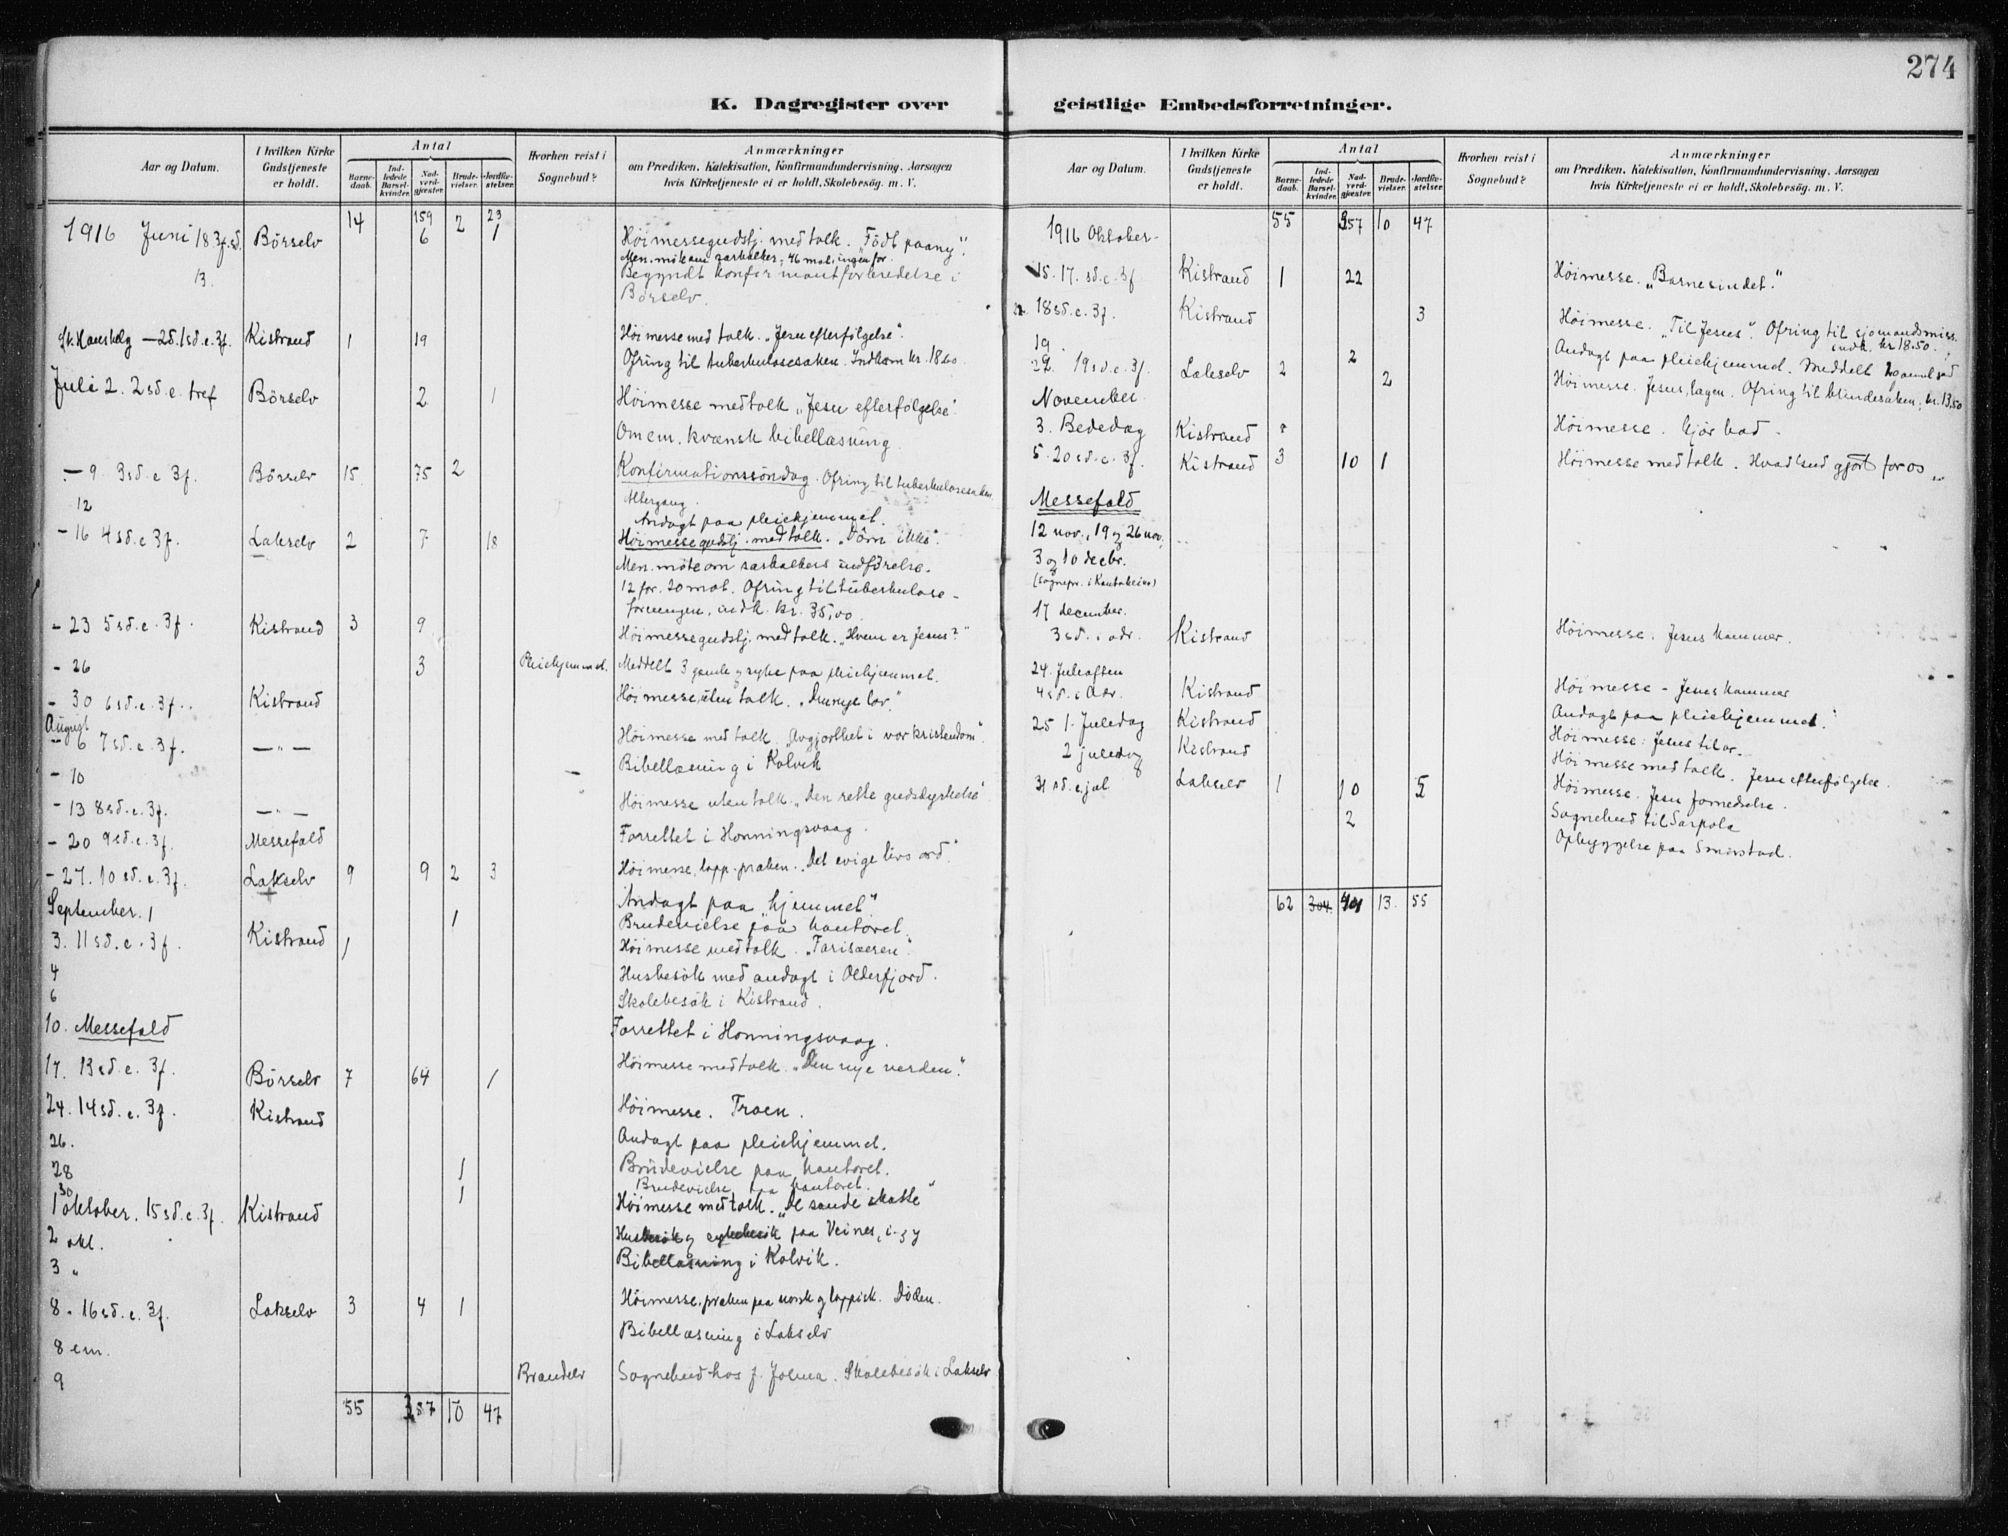 274
K. Dagregister over
geistlige Embedsforretninger.
Aar og Datum.
I hvilken Kirke Gudstjeneste er holdt.
Antal
Barnedaab.
Indledede Barselkvinder.
Nadverdgjæster.
Brudevielser.
Jordfæstelser.
Hvorhen reist i Sognebud?
Anmærkninger
om Prædiken, Katekisation, Konfirmandundervisning, Aarsagen
hvis Kirketjeneste ei er holdt, Skolebesøg. m. V.
14 159 2 23
1916 Juni 18. 3f.sd. Börselv 6 1 Höimessegudstj. med tolk. "Födt paany".
Men. möte om 46 mot ingen for.
13. Begyndt konfirmantforberedelse i
Börselv.
St. Hanshelg - 25. 1sd.e.3f. Kistrand 1 19 Höimesse med tolk. "Jesu efterfölgelse".
Ofring til tuberkulosesaken. Indkom kr. 18.60.
Juli 2. 2sd.e.tref Börselv 2 1 Höimesse med tolk "Jesu efterfölgelse".
Om em. kvænsk bibellæsning.
- 9. 3sd.e.3f. Börselv 15 75 2 Konfirmationssöndag. Ofring til tuberkulosesaken
Altergang.
12 Andagt paa pleiehjemmet.
- 16 4sd.e.3f. Lakselv 2 7 18 Höimessegudstj. med tolk. "Döm ikke".
Men. möte om særkalkers indförelse.
12 for. 20 mot. Ofring til tuberkulose-
foreningen, indk. kr. 35,00.
- 23 5sd.e.3f. Kistrand 3 9 Höimessegudstj. med tolk. "Hvem er Jesus?"
- 26 3 Pleiehjemmet. Meddelt 3 gamle og syke paa pleiehjemmet.
- 30 6sd.e.3f. Kistrand Höimesse uten tolk. "Den nye lov."
August
- 6 7sd.e.3f. -"- Höimesse med tolk. "Avgjorthet i vor kristendom".
- 10 Bibellæsning i Kolvik
- 13 8sd.e.3f. -"- Höimesse uten tolk. "Den rette gudsdyrkelse"
- 20 9sd.e.3f. Messefald Forrettet i Honningsvaag.
- 27. 10sd.e.3f. Lakselv 9 9 2 3 Höimesse, lapp. præken. "Det evige livs ord".
September. 1 Andagt paa "hjemmet"
1 Brudevielse paa kontoret.
3. 11sd.e.3f. Kistrand 1 Höimesse med tolk. "Farisæeren".
4 Husbesök med andagt i Olderfjord.
6 Skolebesök i Kistrand.
10. Messefald Forrettet i Honningsvaag.
17. 13sd.e.3f. Börselv 7 64 1 Höimesse med tolk. "Den nye verden".
24. 14sd.e.3f. Kistrand Höimesse. Troen.
26. Andagt paa pleiehjemmet.
28 1 Brudevielse paa kontoret.
30 1 Brudevielse paa kontoret.
1 oktober. 15sd.e.3f. Kistrand Höimesse med tolk. "De sande skatte"
2 okt. Husbesök og sykebesök paa Veines,
3 " Bibellæsning i Kolvik.
8. 16sd.e.3f. Lakselv 3 4 1 Höimesse. præken paa norsk og lappisk. Döden.
8 em. Bibellæsning i Lakselv
9 Brandelv Sognebud hos J. Skolebesök i Lakselv
55 387 10 47
Aar og Datum.
I hvilken Kirke Gudstjeneste er holdt.
Antal
Barnedaab.
Indledede Barselkvinder.
Nadverdgjæster.
Brudevielser.
Jordfæstelser.
Hvorhen reist i Sognebud?
Anmærkninger
om Prædiken, Katekisation, Konfirmandundervisning, Aarsagen
hvis Kirketjeneste ei er holdt, Skolebesøg. m. V.
1916 Oktober. 55 357 10 47
15. 17. sd.e.3f Kistrand 1 22 Höimesse. "Barnesindet".
18sd.e.3f. Kistrand 3 Höimesse. "Til Jesus". Ofring til sjömandsmiss.
indk. kr 18.50.
19. 2 Andagt paa pleiehjemmet. Meddelt 2
29. 19sd.e.3f. Lakselv 2 2 Höimesse. Ofring til blindesaken, kr. 13,50
November.
3. Bededag Kistrand Höimesse.
5. 20sd.e.3f. Kistrand 3 10 1 Höimesse med tolk. Hvad Gud gjort for os
Messefald
12 nov., 19 og 26 nov.
3 og 10 decbr.
(sognepr. i Kautokeino)
17 december.
3sd. i adv. Kistrand Höimesse. Jesus kommer.
24. Juleaften
4sd. i Adv. Kistrand Höimesse - Jesus kommer
Andagt paa pleiehjemmet.
25 1. Juledag Kistrand Höimesse: Jesus til os.
2 juledag Kistrand Höimesse med tolk. Jesu efterfölgelse.
31 sd.e.jul Lakselv 1 10 5 Höimesse. Jesu fornedrelse.
2 Sognebud til Sarpola
Opbyggelse paa Smörstad.
62 304 401 13. 55